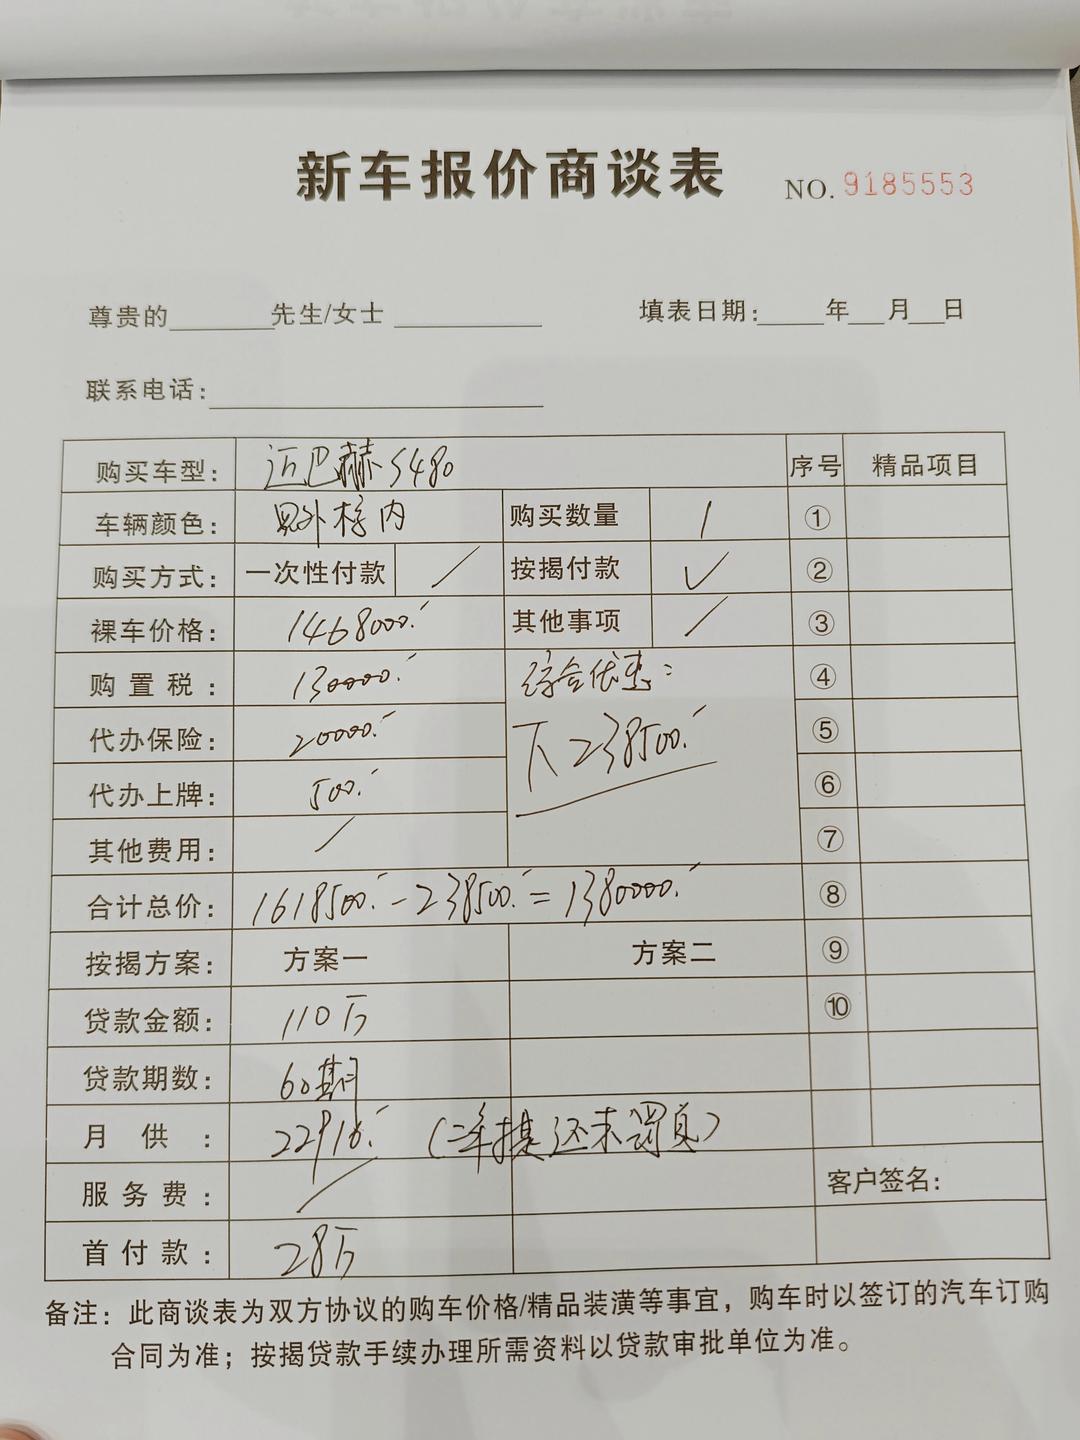 新车报价商谈表 NO. 9185553
尊贵的 先生/女士 填表日期: 年 月 日
联系电话:
购买车型: 迈巴赫S480 序号 精品项目
车辆颜色: 黑外棕内 购买数量 1 ①
购买方式: 一次性付款 / 按揭付款 ✓ ②
裸车价格: 1468000. 其他事项 / ③
购置税: 130000. 综合优惠: ④
代办保险: 20000. 下238500. ⑤
代办上牌: 500. ⑥
其他费用: / ⑦
合计总价: 1618500.-238500.=1380000. ⑧
按揭方案: 方案一 方案二 ⑨
贷款金额: 110万 ⑩
贷款期数: 60期
月供: 22916. (二年提还未罚息)
服务费: / 客户签名:
首付款: 28万
备注: 此商谈表为双方协议的购车价格/精品装潢等事宜，购车时以签订的汽车订购
合同为准；按揭贷款手续办理所需资料以贷款审批单位为准。